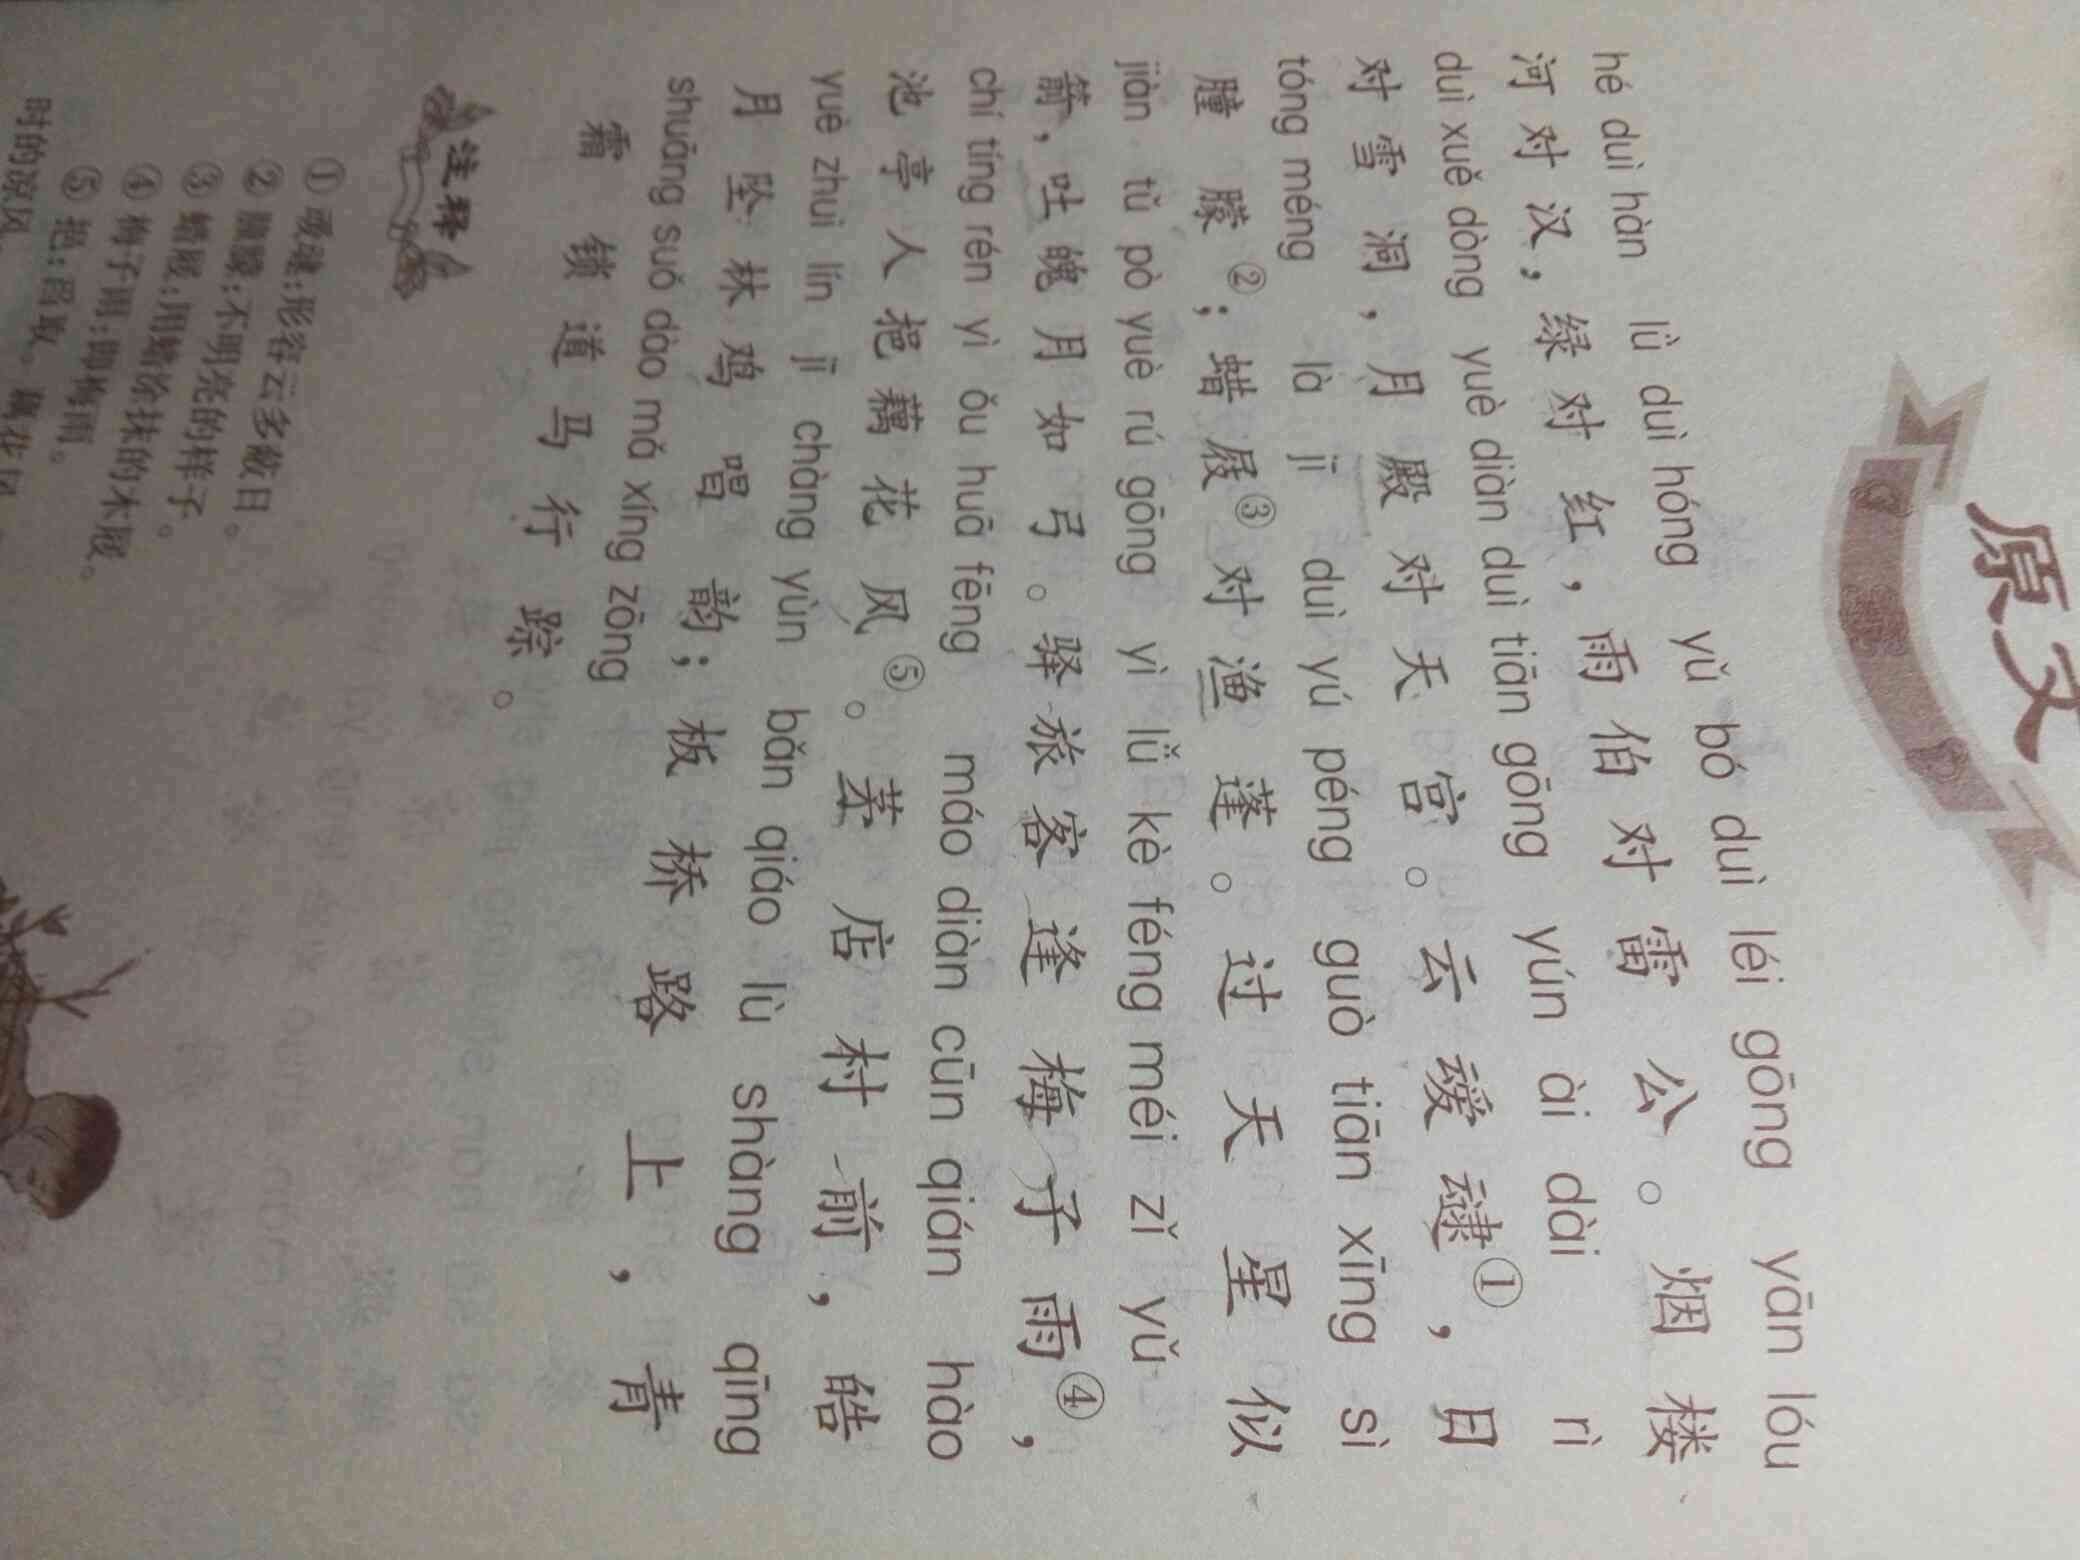 原文
hé duì hàn lǜ duì hóng yǔ bó duì léi gōng yān lóu
河对汉，绿对红，雨伯对雷公。烟楼
duì xuě dòng yuè diàn duì tiān gōng yún ài dài rì
对雪洞，月殿对天宫。云叆叇①，日
tóng méng là jī duì yú péng guò tiān xīng sì
曈曚②；蜡屐③对渔蓬。过天星似
jiàn tǔ pò yuè rú gōng yì lǚ kè féng méi zǐ yǔ
箭，吐魄月如弓。驿旅客逢梅子雨④，
chí tíng rén yì ǒu huā fēng máo diàn cūn qián hào
池亭人挹藕花风⑤。茅店村前，皓
yuè zhuì lín jī chàng yùn bǎn qiáo lù shàng qīng
月坠林鸡唱韵；板桥路上，青
shuāng suǒ dào mǎ xíng zōng
霜锁道马行踪。
注释
①叆叇：形容云多蔽日。
②曈曚：不明亮的样子。
③蜡屐：用蜡涂抹的木屐。
④梅子雨：即梅雨。
⑤挹：舀取。藕花风
时的凉风